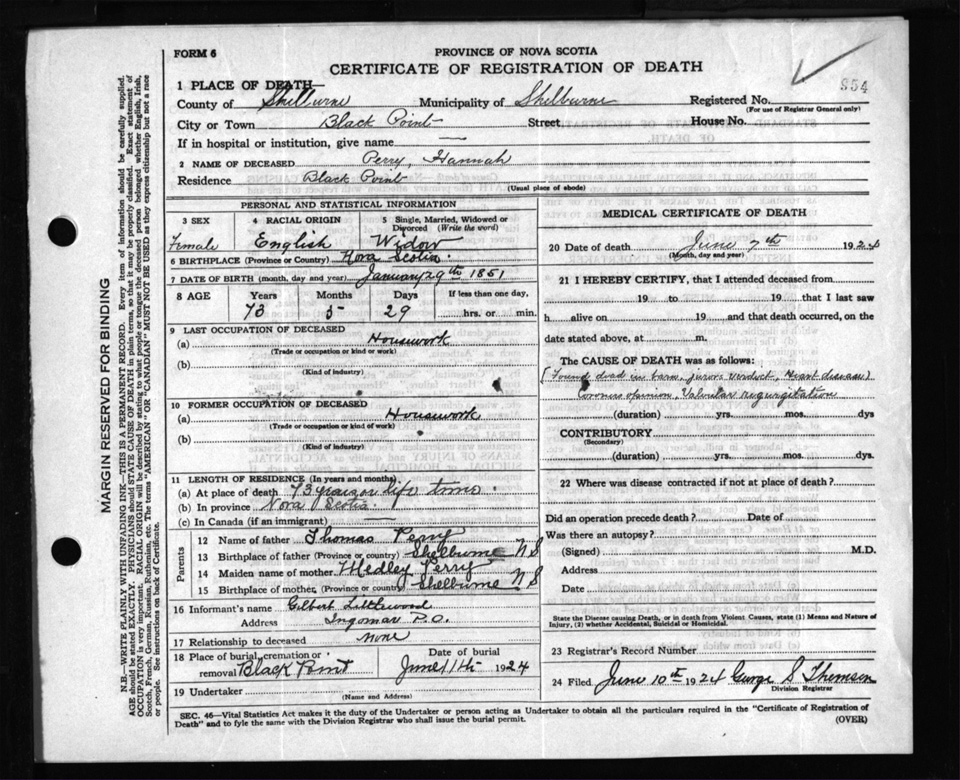 FORM 6
PROVINCE OF NOVA SCOTIA
CERTIFICATE OF REGISTRATION OF DEATH
954
1 PLACE OF DEATH—
County of Shelburne Municipality of Shelburne Registered No.
(For use of Registrar General only)
City or Town Black Point Street House No.
If in hospital or institution, give name —
2 NAME OF DECEASED Perry, Hannah
Residence Black Point
(Usual place of abode)
PERSONAL AND STATISTICAL INFORMATION
3 SEX 4 RACIAL ORIGIN 5 Single, Married, Widowed or Divorced (Write the word)
Female English Widow
6 BIRTHPLACE (Province or Country) Nova Scotia
7 DATE OF BIRTH (month, day and year) January 29th 1851
8 AGE Years Months Days If less than one day,
73 5 29 hrs. or min.
9 LAST OCCUPATION OF DECEASED
(a) Housework
(Trade or occupation or kind or work)
(b)
(Kind of industry)
10 FORMER OCCUPATION OF DECEASED
(a) Housework
(Trade or occupation or kind of work)
(b)
(Kind of industry)
11 LENGTH OF RESIDENCE (In years and months)
(a) At place of death 73 years or life time
(b) In province Nova Scotia
(c) In Canada (if an immigrant) —
Parents
12 Name of father Thomas Perry
13 Birthplace of father (Province or country) Shelburne N S
14 Maiden name of mother Medley Perry
15 Birthplace of mother (Province or country) Shelburne N S
16 Informant's name Gilbert Littlewood
Address Ingomar P.O.
17 Relationship to deceased none
18 Place of burial, cremation or removal Black Point Date of burial June 11th 1924
19 Undertaker
(Name and Address)
MEDICAL CERTIFICATE OF DEATH
20 Date of death June 7th 1924
(Month, day and year)
21 I HEREBY CERTIFY, that I attended deceased from
19 to 19 that I last saw
h alive on 19 and that death occurred, on the
date stated above, at m.
The CAUSE OF DEATH was as follows:
(Found dead in barn, jurors verdict, Heart disease)
Coroners opinion, Valvular regurgitation
(duration) yrs. mos. dys
CONTRIBUTORY
(Secondary)
(duration) yrs. mos. dys.
22 Where was disease contracted if not at place of death?
Did an operation precede death? Date of
Was there an autopsy?
(Signed) M.D.
Address
Date
State the Disease causing Death, or in death from Violent Causes, state (1) Means and Nature of
Injury, (2) whether Accidental, Suicidal or Homicidal.
23 Registrar's Record Number
24 Filed June 10th 1924 George S Thomson
Division Registrar
SEC. 46—Vital Statistics Act makes it the duty of the Undertaker or person acting as Undertaker to obtain all the particulars required in the "Certificate of Registration of
Death" and to fyle the same with the Division Registrar who shall issue the burial permit.
(OVER)
MARGIN RESERVED FOR BINDING
N.B.—WRITE PLAINLY WITH UNFADING INK—THIS IS A PERMANENT RECORD. Every item of information should be carefully supplied.
AGE should be stated EXACTLY. PHYSICIANS should STATE CAUSE OF DEATH in plain terms, so that it may be properly classified. Exact statement of
OCCUPATION is very important. RACIAL ORIGIN will be described by stating to what people or tongue the deceased person belonged whether English, Irish,
Scotch, French, German, Russian, Ruthenian, etc. The terms "AMERICAN" OR "CANADIAN" MUST NOT BE USED as they express citizenship but not a race
or people. See instructions on back of Certificate.